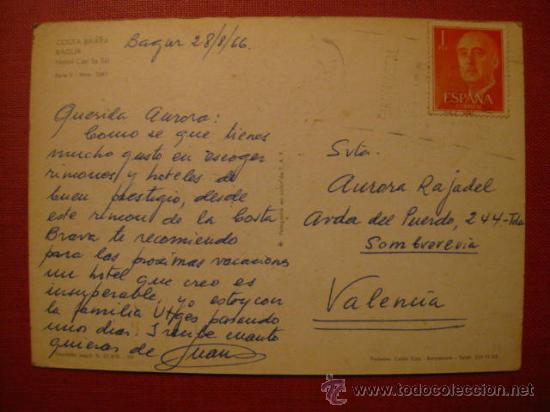 COSTA BRAVA
BAGUR
Hotel Cap Sa Sal
Bagur 28/8/66.
1
ESPAÑA
Querida Aurora:
Como se que tienes
mucho gusto en escoger
rincones y hoteles de
buen prestigio, desde
este rincon de la Costa
Brava te recomiendo
para las proximas vacaciones
un hotel que creo es
insuperable, yo estoy con
la familia Utges pasando
unos dias. Recibe cuanto
quieras de Juan
Srta.
Aurora Rajadel
Avda del Puerto, 244-Tda
Sombrereria
Valencia
todocoleccion
www.todocoleccion.net